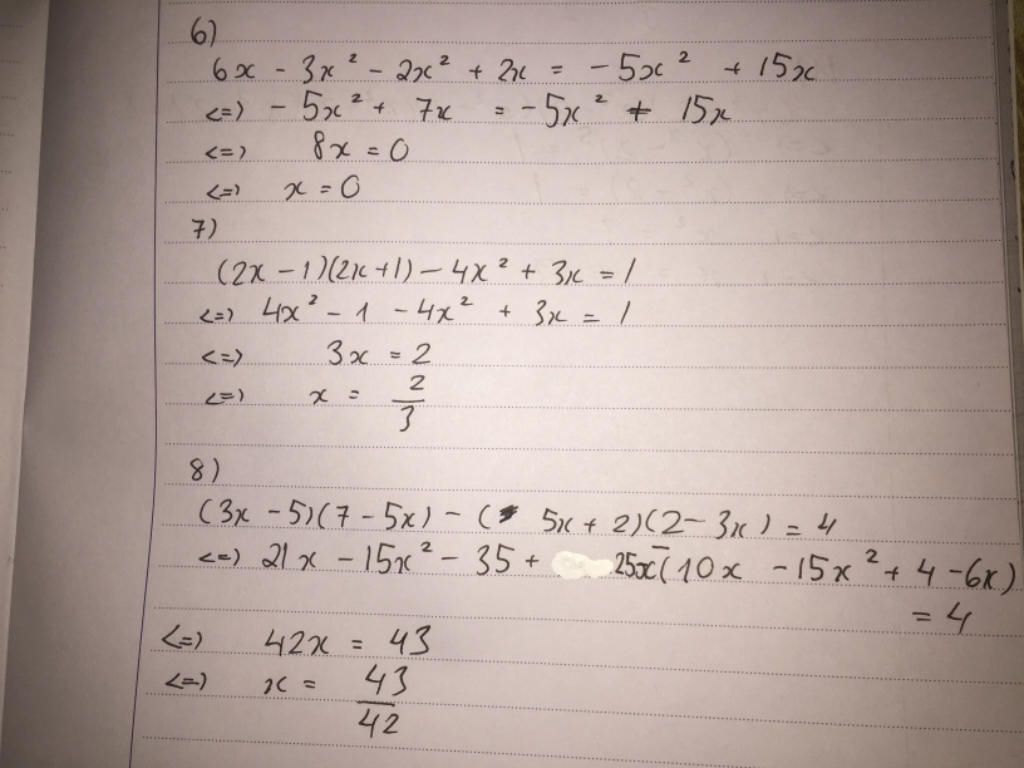 6)
6x - 3x² - 2x² + 2x = - 5x² + 15x
<=> - 5x² + 7x = - 5x² + 15x
<=> 8x = 0
<=> x = 0
7)
(2x - 1)(2x + 1) - 4x² + 3x = 1
<=> 4x² - 1 - 4x² + 3x = 1
<=> 3x = 2
<=> x = 2/3
8)
(3x - 5)(7 - 5x) - ( 5x + 2)(2 - 3x) = 4
<=> 21x - 15x² - 35 + 25x - (10x - 15x² + 4 - 6x)
= 4
<=> 42x = 43
<=> x = 43/42